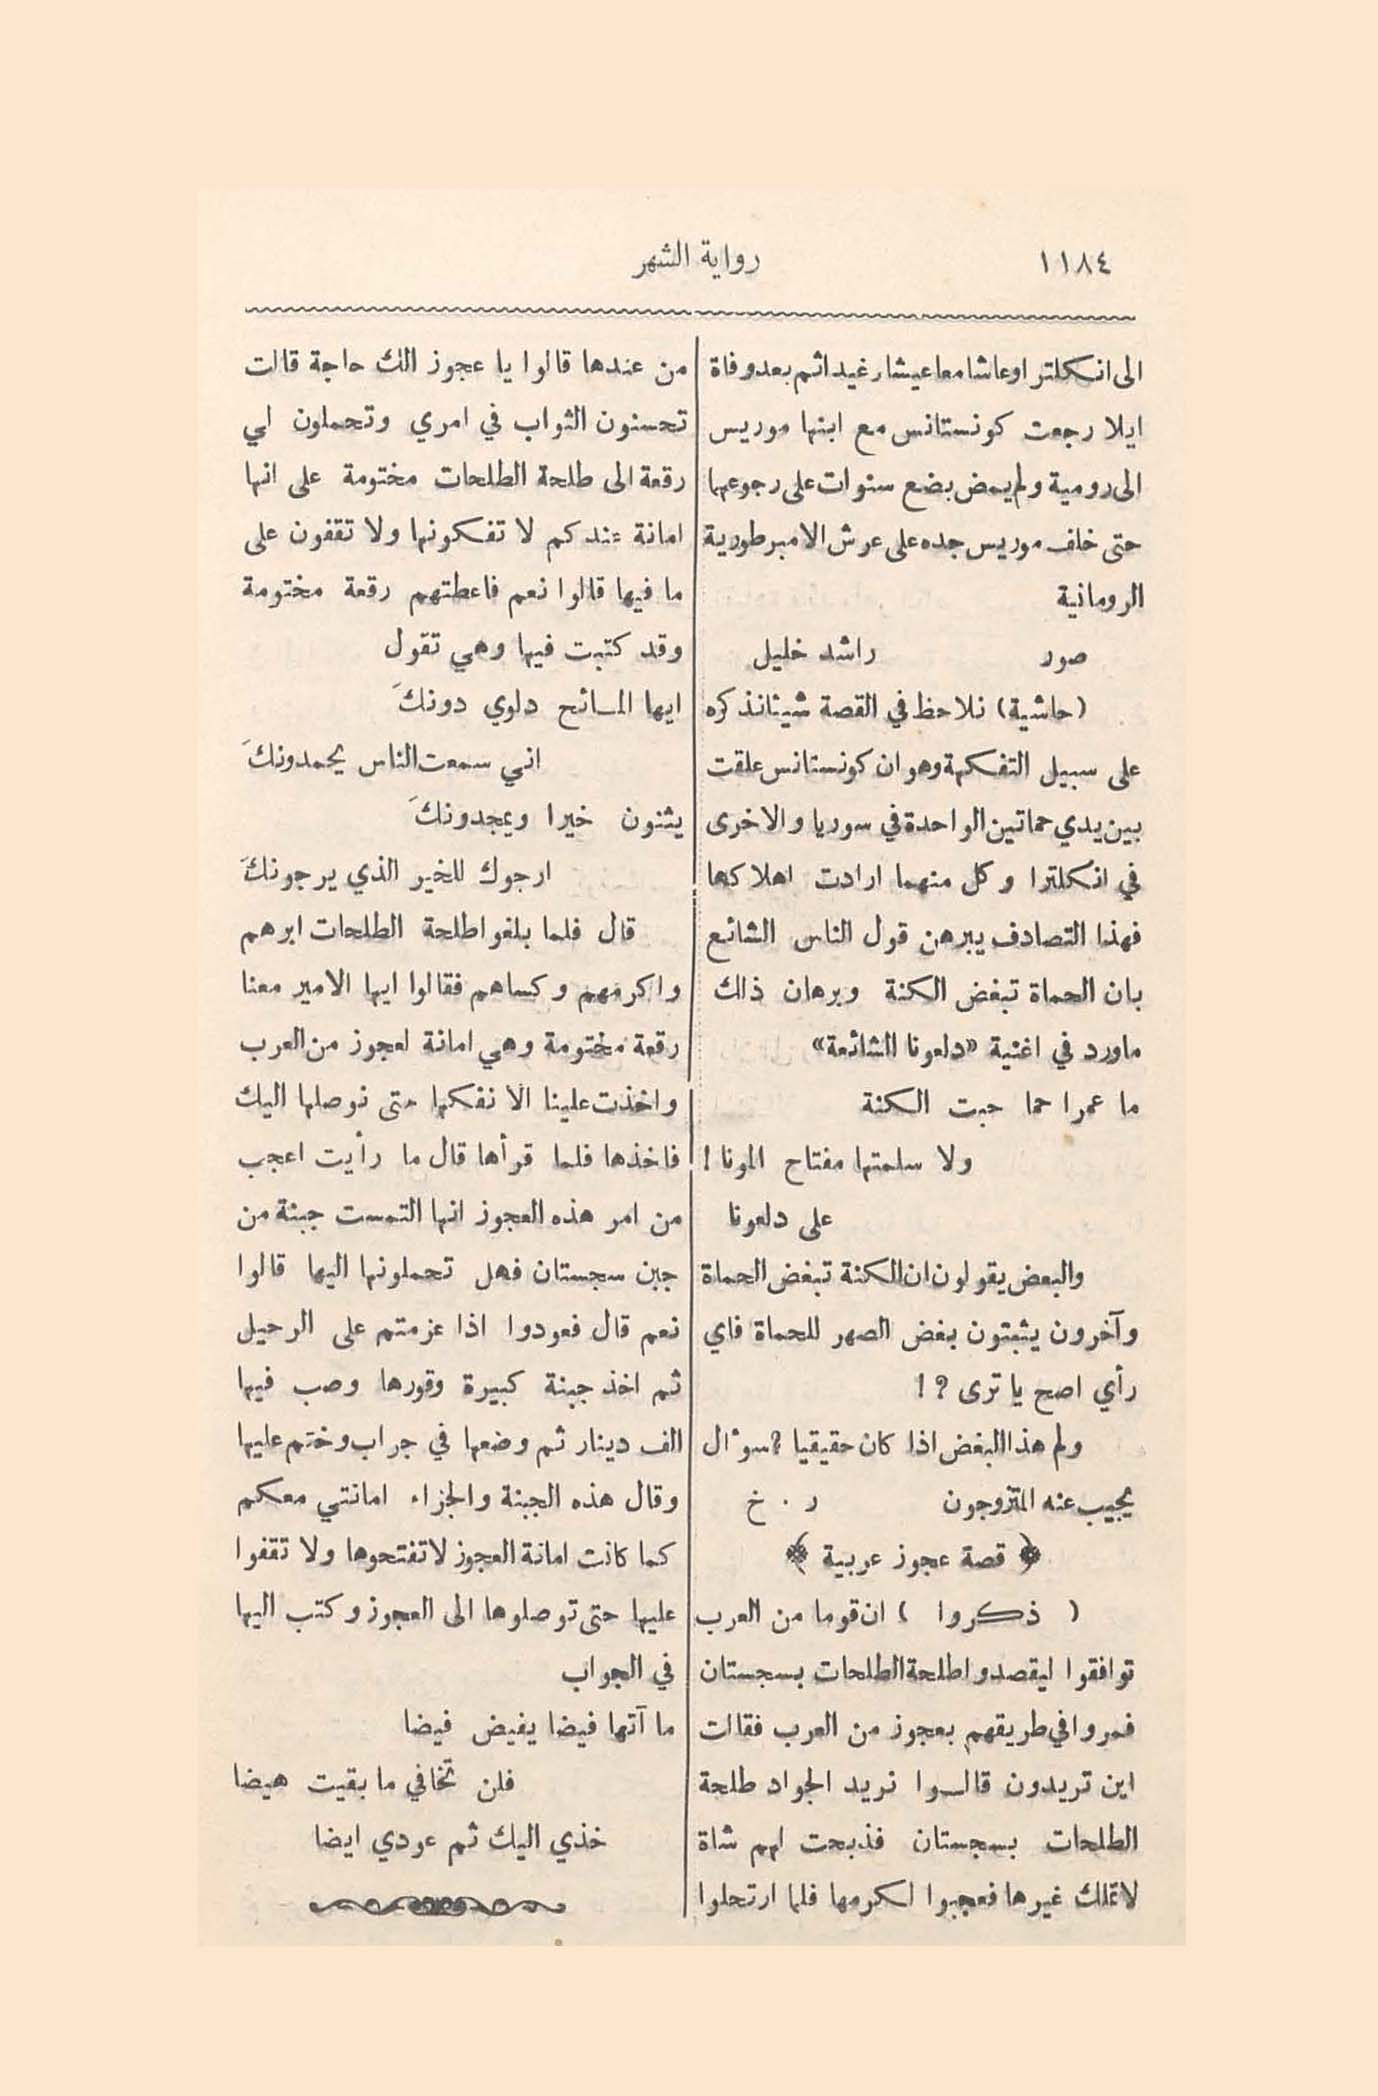 ١١٨٤
رواية الشهر
الى انكلترا وعاشا معا عيشا رغيدا ثم بعد وفاة
ايلا رجعت كونستانس مع ابنها موريس
الى رومية ولم يمض بضع سنوات على رجوعهما
حتى خلف موريس جده على عرش الامبرطورية
الرومانية
صور راشد خليل
(حاشية) نلاحظ في القصة شيئا نذكره
على سبيل التفكهة وهو ان كونستانس علقت
بين يدي حماتين الواحدة في سوريا والاخرى
في انكلترا وكل منهما ارادت اهلاكها
فهذا التصادف يبرهن قول الناس الشائع
بان الحماة تبغض الكنة وبرهان ذلك
ماورد في اغنية «دلعونا الشائعة»
ما عمرا حما حبت الكنة
ولا سلمتها مفتاح المونا !
على دلعونا
والبعض يقولون ان الكنة تبغض الحماة
وآخرون يثبتون بغض الصهر للحماة فاي
رأي اصح يا ترى ؟ !
ولم هذا البغض اذا كان حقيقيا ؟ سوٴال
يجيب عنه المتزوجون ر . خ
﴿ قصة عجوز عربية ﴾
( ذكروا ) ان قوما من العرب
توافقوا ليقصدوا طلحة الطلحات بسجستان
فمروا في طريقهم بعجوز من العرب فقالت
اين تريدون قالوا نريد الجواد طلحة
الطلحات بسجستان فذبحت لهم شاة
لا تملك غيرها فعجبوا لكرمها فلما ارتحلوا
من عندها قالوا يا عجوز الك حاجة قالت
تحسنون الثواب في امري وتحملون لي
رقعة الى طلحة الطلحات مختومة على انها
امانة عندكم لا تفكونها ولا تقفون على
ما فيها قالوا نعم فاعطتهم رقعة مختومة
وقد كتبت فيها وهي تقول
ايها المائح دلوي دونكَ
اني سمعت الناس يحمدونكَ
يثنون خيرا ويمجدونكَ
ارجوك للخير الذي يرجونكَ
قال فلما بلغوا طلحة الطلحات ابرهم
واكرمهم وكساهم فقالوا ايها الامير معنا
رقعة مختومة وهي امانة لعجوز من العرب
واخذت علينا الا نفكها حتى نوصلها اليك
فاخذها فلما قرأها قال ما رأيت اعجب
من امر هذه العجوز انها التمست جبنة من
جبن سجستان فهل تحملونها اليها قالوا
نعم قال فعودوا اذا عزمتم على الرحيل
ثم اخذ جبنة كبيرة وقورها وصب فيها
الف دينار ثم وضعها في جراب وختم عليها
وقال هذه الجبنة والجزاء امانتي معكم
كما كانت امانة العجوز لا تفتحوها ولا تقفوا
عليها حتى توصلوها الى العجوز وكتب اليها
في الجواب
ما آتها فيضا يفيض فيضا
فلن تخافي ما بقيت هيضا
خذي اليك ثم عودي ايضا